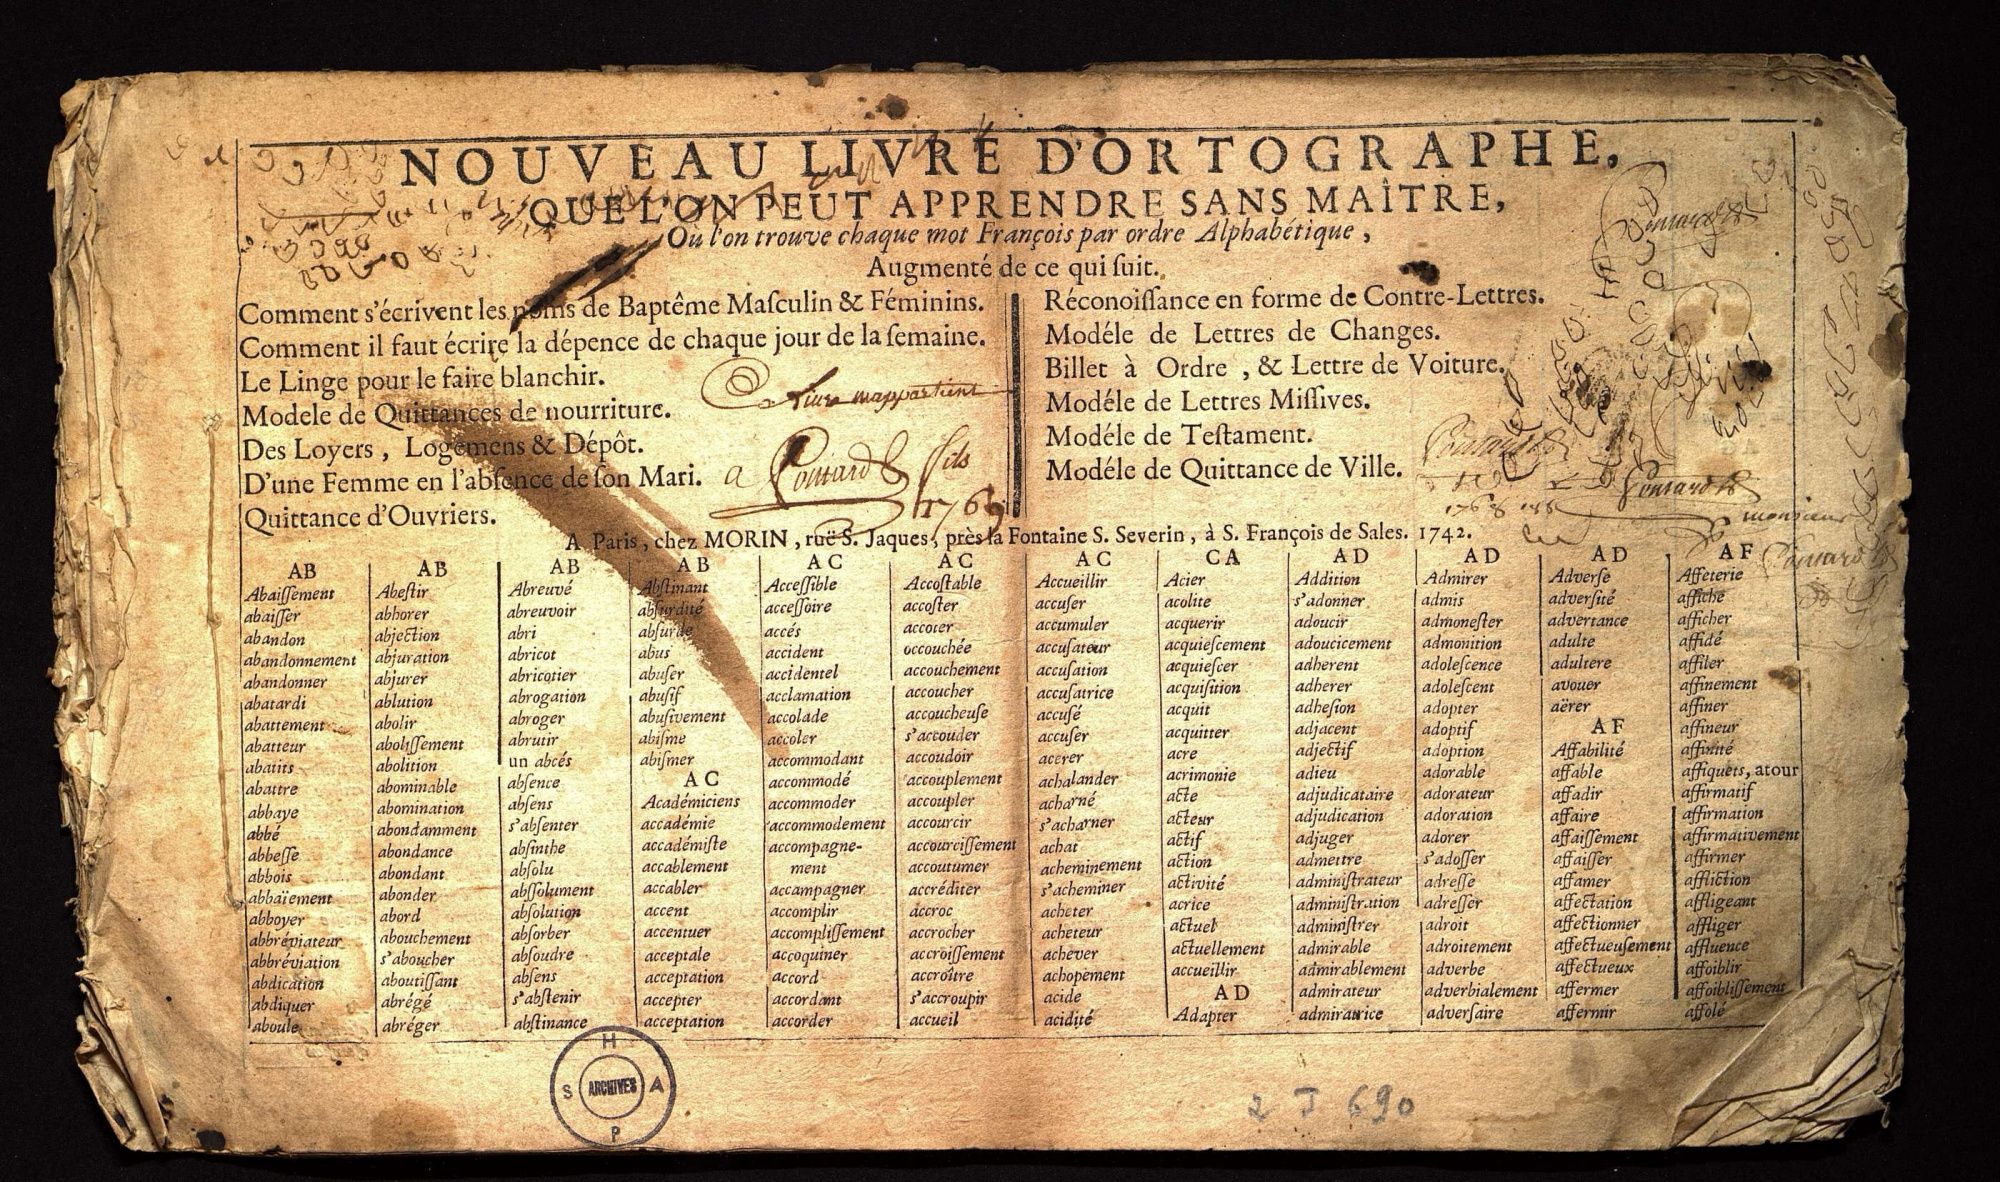 NOUVEAU LIVRE D'ORTOGRAPHE,
QUE L'ON PEUT APPRENDRE SANS MAÎTRE,
Où l'on trouve chaque mot François par ordre Alphabétique,
Augmenté de ce qui ſuit.
Comment s'écrivent les noms de Baptême Maſculin & Féminins.
Comment il faut écrire la dépence de chaque jour de la ſemaine.
Le Linge pour le faire blanchir.
Modele de Quittances de nourriture.
Des Loyers, Logemens & Dépôt.
D'une Femme en l'abſence de ſon Mari.
Quittance d'Ouvriers.
Livre mappartient
a Pontard fils
1769
Réconoiſſance en forme de Contre-Lettres.
Modéle de Lettres de Changes.
Billet à Ordre, & Lettre de Voiture.
Modéle de Lettres Miſſives.
Modéle de Teſtament.
Modéle de Quittance de Ville.
1768
monsieur
A Paris, chez MORIN, ruë S. Jaques, près la Fontaine S. Severin, à S. François de Sales. 1742.
AB
Abaiſſement
abaiſſer
abandon
abandonnement
abandonner
abatardi
abattement
abatteur
abatits
abattre
abbaye
abbé
abbeſſe
abbois
abbaïement
abboyer
abbréviateur
abbréviation
abdication
abdiquer
aboule
AB
Abeſtir
abhorer
abjection
abjuration
abjurer
ablution
abolir
aboliſſement
abolition
abominable
abomination
abondamment
abondance
abondant
abonder
abord
abouchement
s'aboucher
aboutiſſant
abrégé
abréger
AB
Abreuvé
abreuvoir
abri
abricot
abricotier
abrogation
abroger
abrutir
un abcés
abſence
abſens
s'abſenter
abſinthe
abſolu
abſſolument
abſolution
abſorber
abſoudre
abſens
s'abſtenir
abſtinance
AB
Abſtinant
abſurdité
abſurde
abus
abuſer
abuſif
abuſivement
abiſme
abiſmer
AC
Académiciens
accadémie
accadémiſte
accablement
accabler
accent
accentuer
acceptale
acceptation
accepter
acceptation
AC
Acceſſible
acceſſoire
accés
accident
accidentel
acclamation
accolade
accoler
accommodant
accommodé
accommoder
accommodement
accompagne-
ment
accampagner
accomplir
accompliſſement
accoquiner
accord
accordant
accorder
AC
Accoſtable
accoſter
accoter
occouchée
accouchement
accoucher
accoucheuſe
s'accouder
accoudoir
accouplement
accoupler
accourcir
accourciſſement
accoutumer
accréditer
accroc
accrocher
accroiſſement
accroître
s'accroupir
accueil
AC
Accueillir
accuſer
accumuler
accuſateur
accuſation
accuſatrice
accuſé
accuſer
acerer
achalander
acharné
s'acharner
achat
acheminement
s'acheminer
acheter
acheteur
achever
achopement
acide
acidité
CA
Acier
acolite
acquerir
acquieſcement
acquieſcer
acquiſition
acquit
acquitter
acre
acrimonie
acte
acteur
actif
action
activité
acrice
actuel
actuellement
accueillir
AD
Adapter
AD
Addition
s'adonner
adoucir
adoucicement
adherent
adherer
adheſion
adjacent
adjectif
adieu
adjudicataire
adjudication
adjuger
admettre
adminiſtrateur
adminiſtration
adminiſtrer
admirable
admirablement
admirateur
admiratrice
AD
Admirer
admis
admoneſter
admonition
adoleſcence
adoleſcent
adopter
adoptif
adoption
adorable
adorateur
adoration
adorer
s'adoſſer
adreſſe
adreſſer
adroit
adroitement
adverbe
adverbialement
adverſaire
AD
Adverſe
adverſité
advertance
adulte
adultere
avouer
aërer
AF
Affabilité
affable
affadir
affaire
affaiſſement
affaiſſer
affamer
affectation
affectionner
affectueuſement
affectueux
affermer
affermir
AF
Affeterie
affiche
afficher
affidé
affiler
affinement
affiner
affineur
affinité
affiquets, atour
affirmatif
affirmation
affirmativement
affirmer
affliction
affligeant
affliger
affluence
affoiblir
affoibliſſement
affolé
H
S ARCHIVES A
P
2 J 690